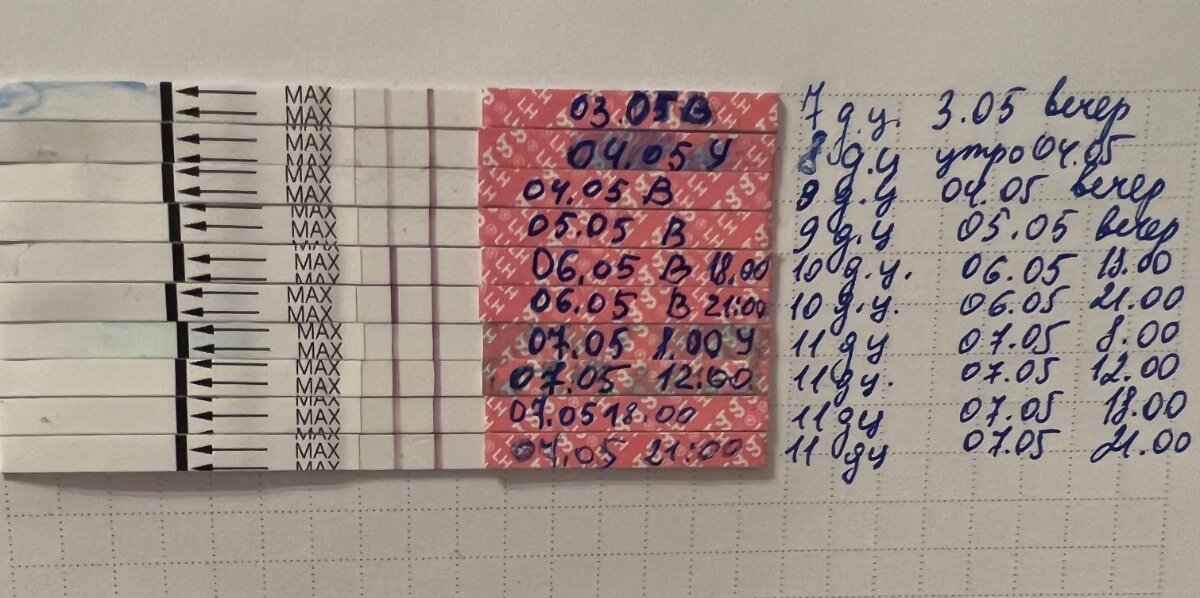 MAX 03.05 В 7 д.ц. 3.05 вечер
MAX 04.05 У 8 д.ц утро 04.05
MAX 04.05 В 8 д.ц 04.05 вечер
MAX 05.05 В 9 д.ц 05.05 вечер
MAX 06.05 В 18.00 10 д.ц. 06.05 18.00
MAX 06.05 В 21:00 10 д.ц. 06.05 21.00
MAX 07.05 8.00 У 11 дц 07.05 8.00
MAX 07.05 12:00 11 дц. 07.05 12.00
MAX 07.05 18:00 11 дц 07.05 18.00
MAX 07.05 21:00 11 дц 07.05 21.00